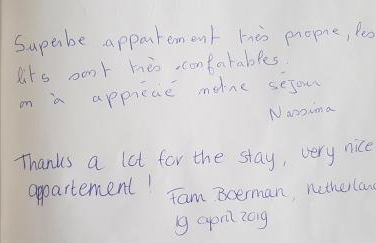 Superbe appartement très propre, les
lits sont très confortables.
on à apprécié notre séjour
Nassima
Thanks a lot for the stay, very nice
appartement !
Fam Boerman, Netherland
19 april 2019